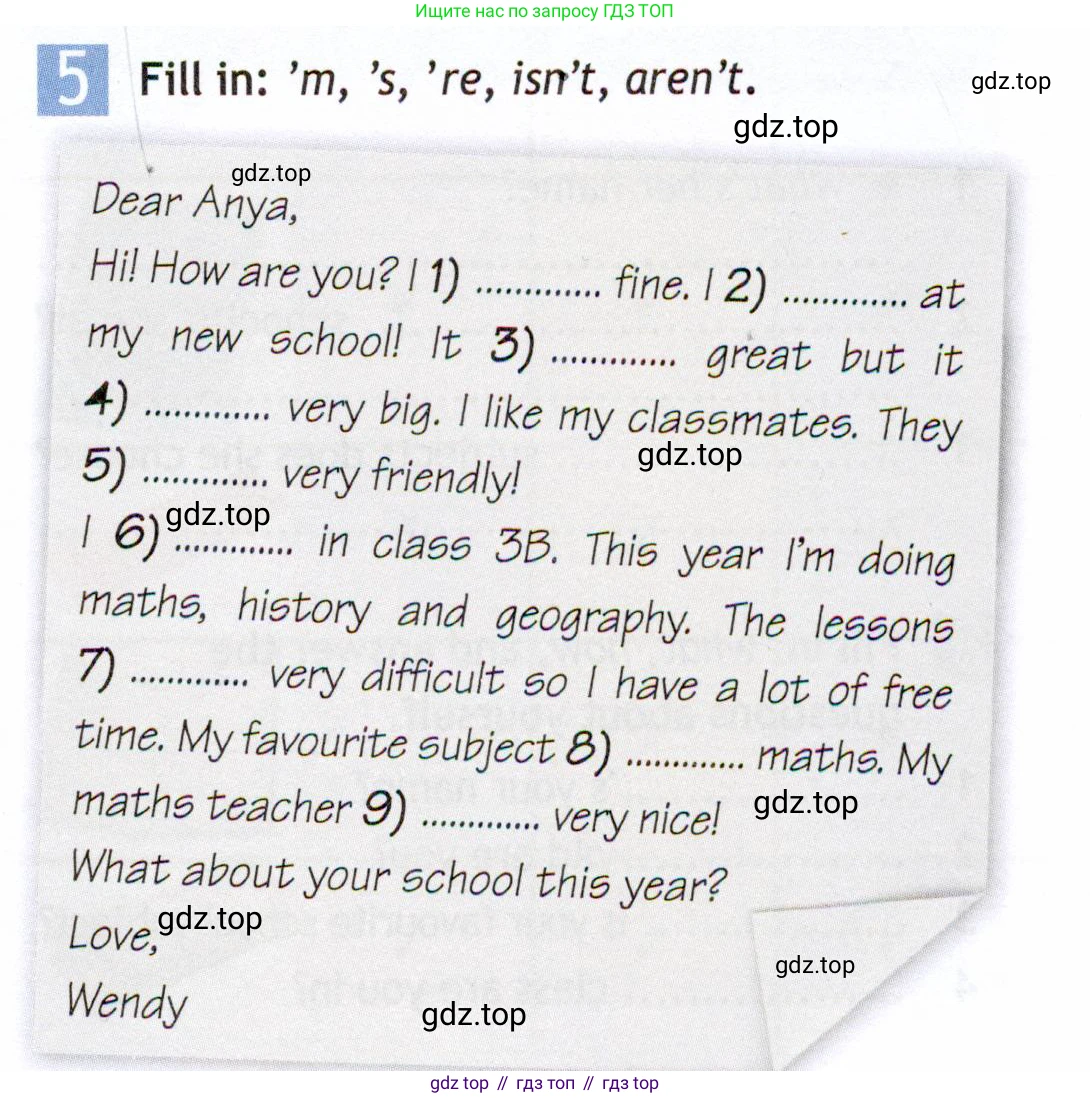 Ищите нас по запросу ГДЗ ТОП
5 Fill in: ’m, ’s, ’re, isn’t, aren’t.
gdz.top
gdz.top
gdz.top
Dear Anya,
Hi! How are you? I 1) ............. fine. I 2) ............. at
my new school! It 3) ............. great but it
4) ............. very big. I like my classmates. They
gdz.top
5) ............. very friendly!
gdz.top
I 6) ............. in class 3B. This year I’m doing
maths, history and geography. The lessons
7) ............. very difficult so I have a lot of free
time. My favourite subject 8) ............. maths. My
gdz.top
maths teacher 9) ............. very nice!
What about your school this year?
gdz.top
Love,
gdz.top
Wendy
gdz.top
gdz top // гдз топ // gdz top